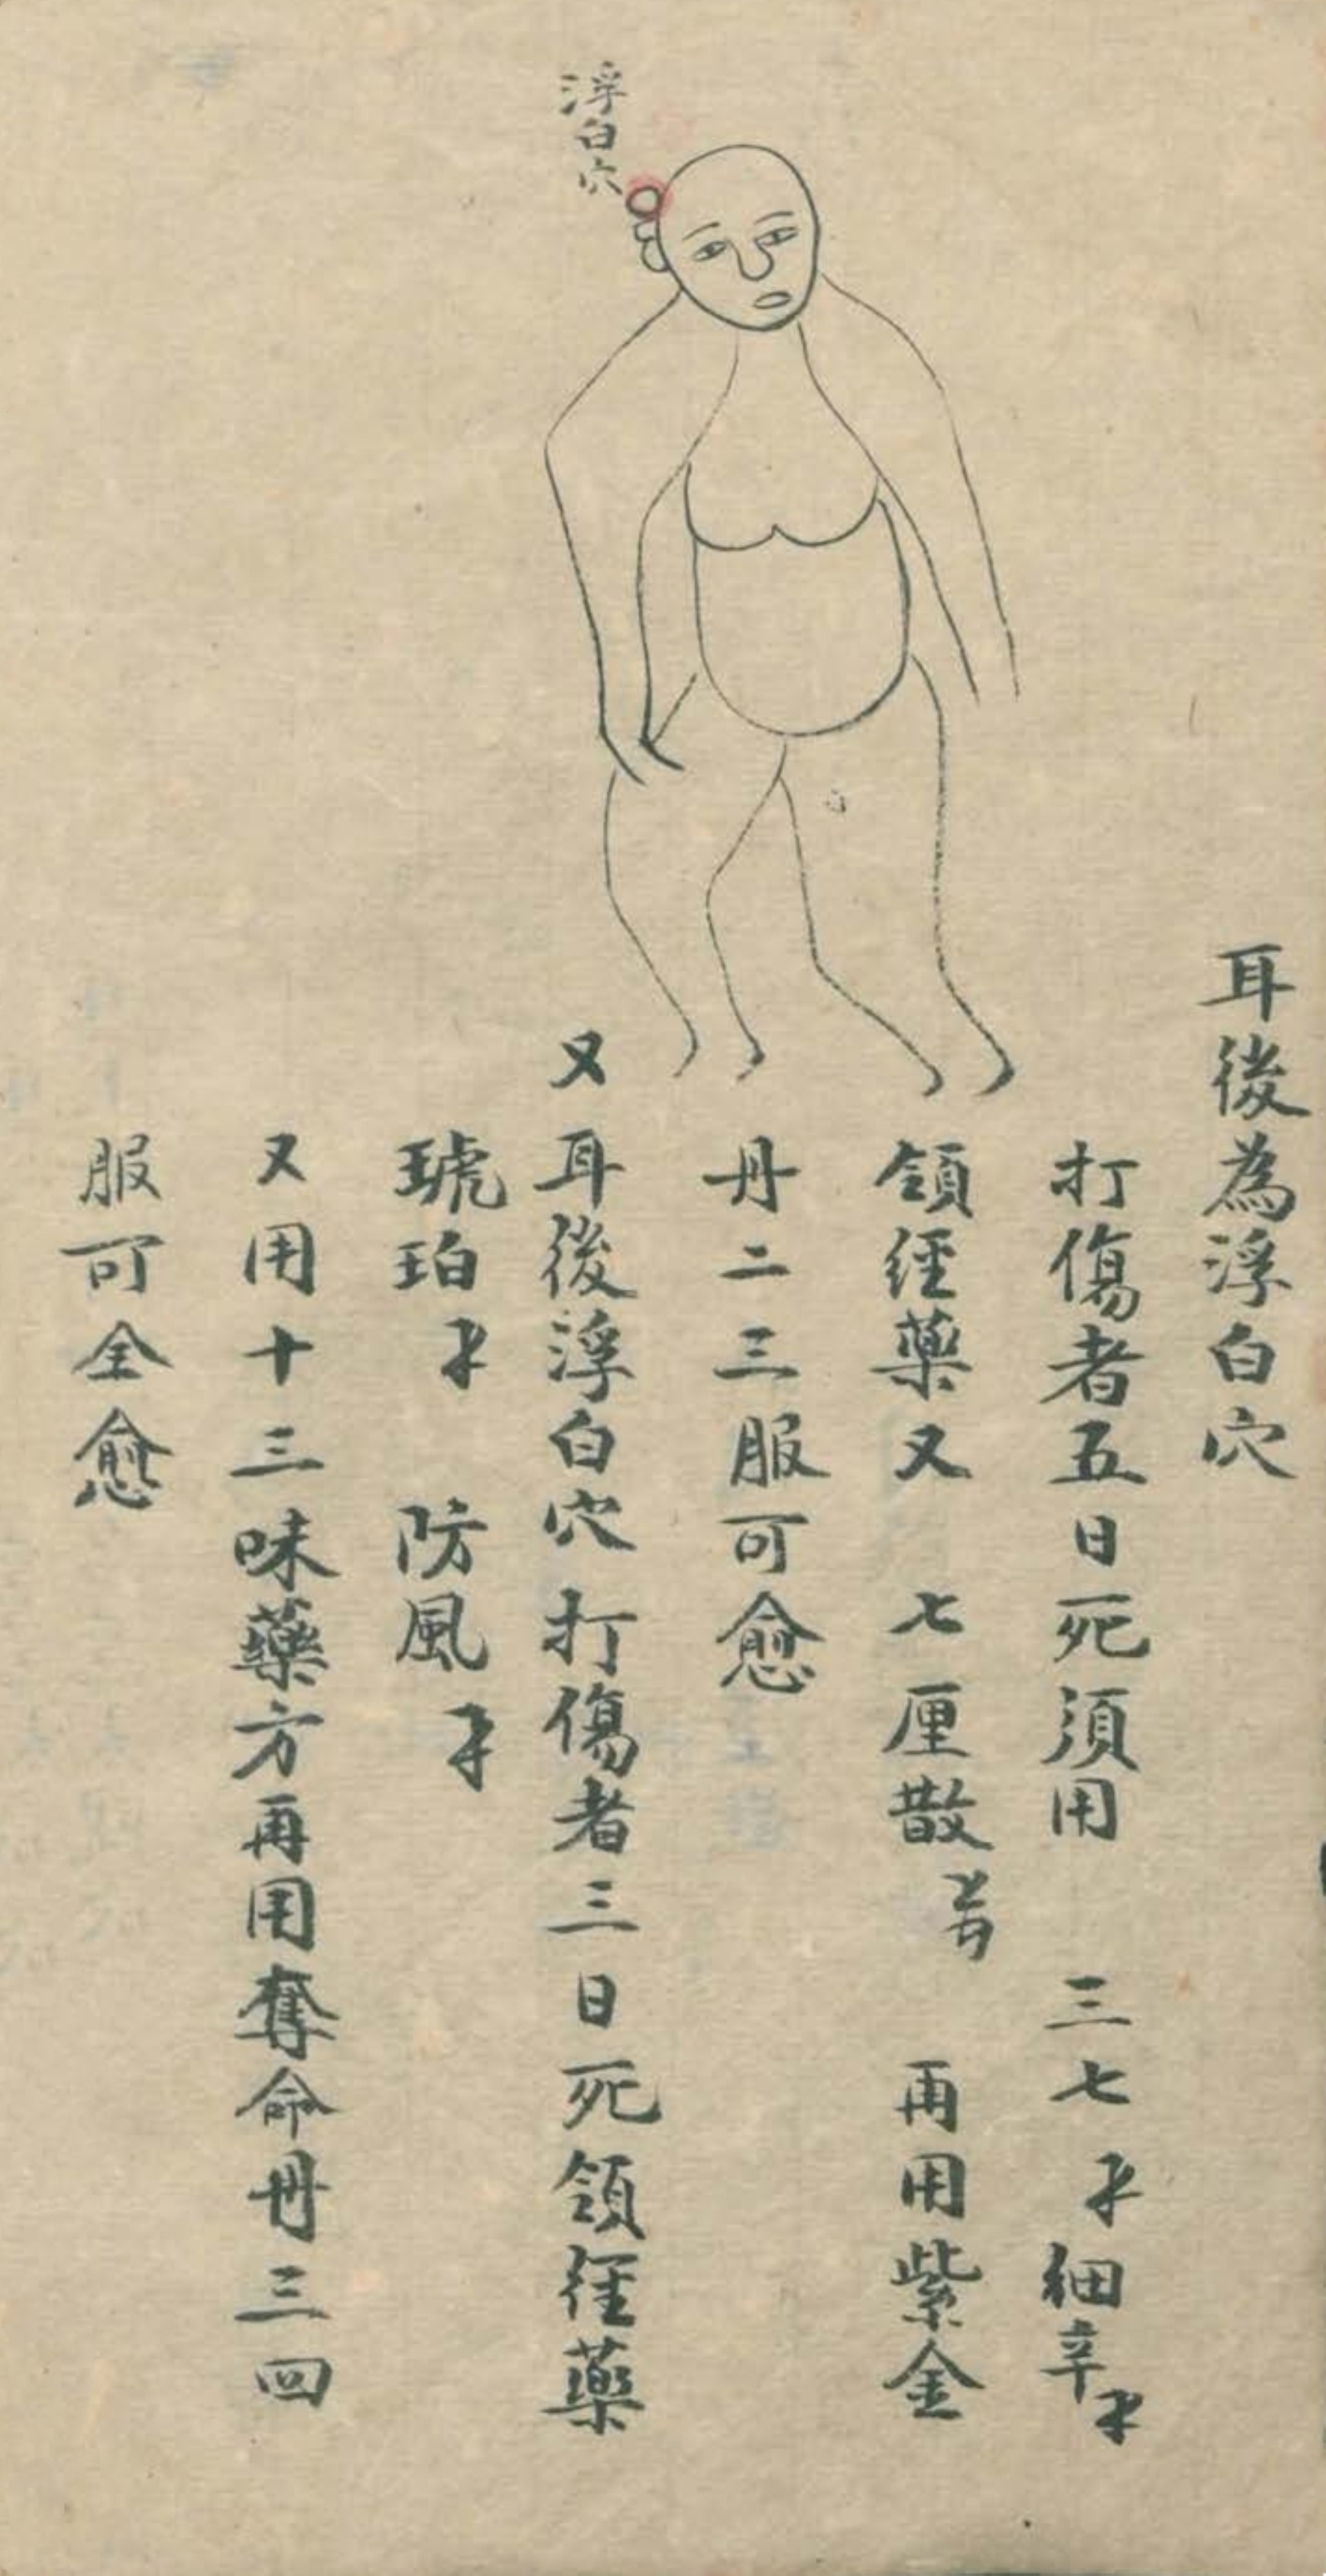 浮白穴
耳後為浮白穴
打傷者五日死須用 三七 細辛
領經藥又 七厘散 再用紫金
丹二三服可愈
又耳後浮白穴打傷者三日死領經藥
琥珀 防風
又用十三味藥方再用奪命丹三四
服可全愈